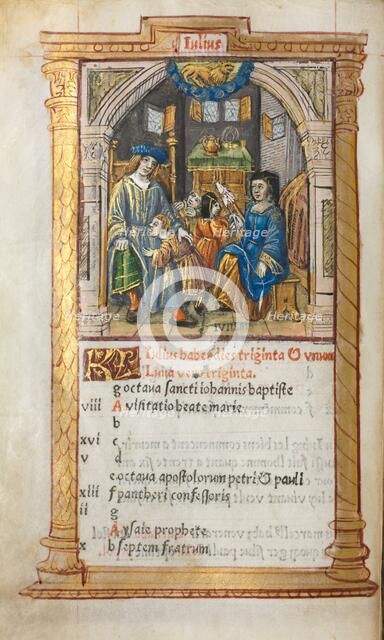 Iulius
KL Iulius habet dies triginta &
Luna vero triginta.
g octava sancti iohannis baptiste
viii A visitatio beate marie
b
xvi c
v d
e octava apostolorum petri & pauli
xiii f pantheri confessoris
ii g
A ysaie prophete
x b septem fratrum